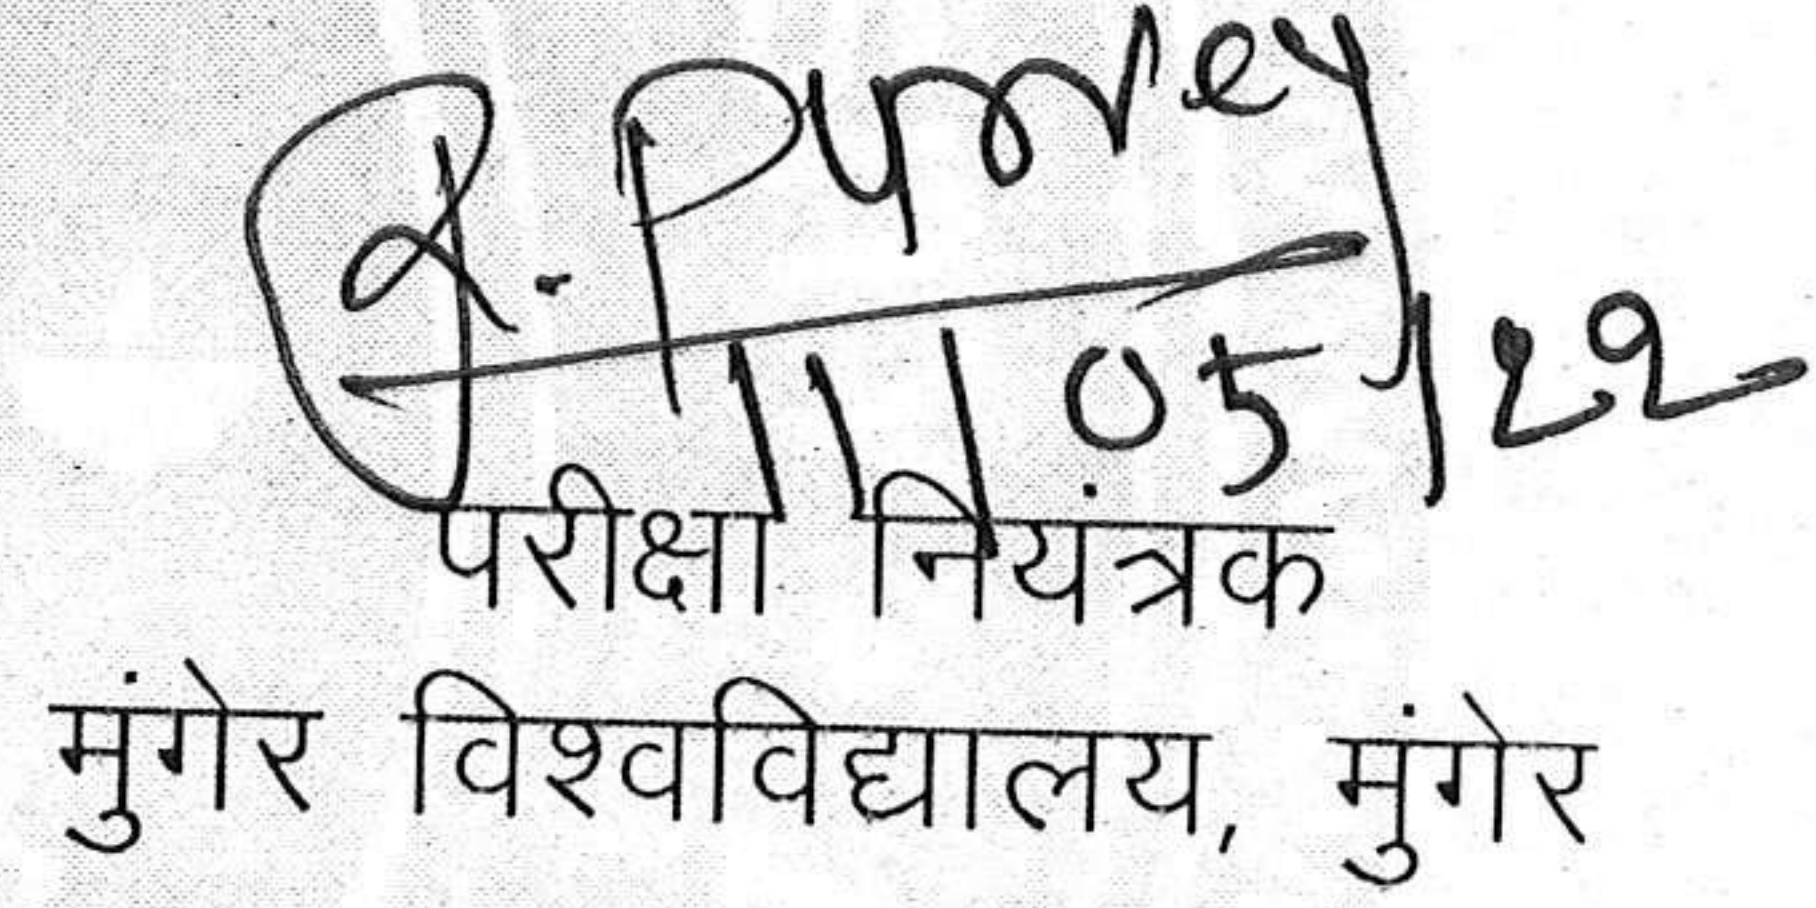 R. Purvey
11/05/22
परीक्षा नियंत्रक
मुंगेर विश्वविद्यालय, मुंगेर